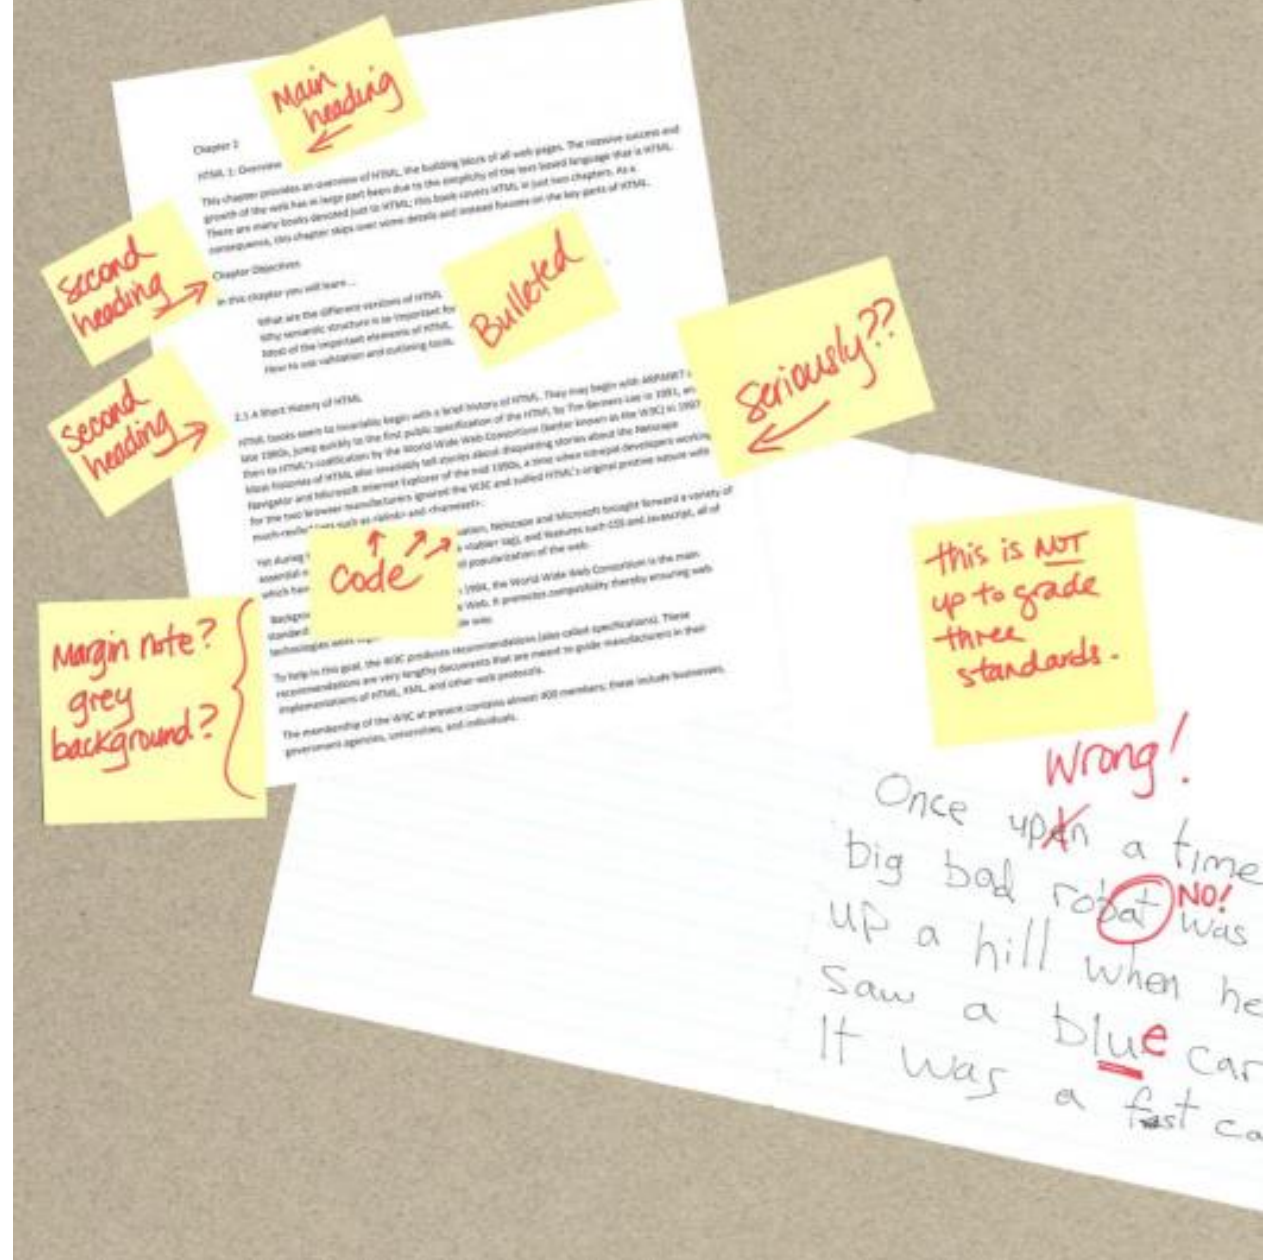 Main
heading
Chapter 2
HTML 1: Overview
This chapter provides an overview of HTML, the building block of all web pages. The massive success and
growth of the web has in large part been due to the simplicity of the text-based language that is HTML.
There are many books devoted just to HTML; this book covers HTML in just two chapters. As a
consequence, this chapter skips over some details and instead focuses on the key parts of HTML.
second
heading
Chapter Objectives
In this chapter you will learn ...
What are the different versions of HTML
Why semantic structure is so important for
Most of the important elements of HTML
How to use validation and outlining tools.
Bulleted
seriously??
second
heading
2.1 A Short History of HTML
HTML books seem to invariable begin with a brief history of HTML. They may begin with ARPANET
late 1980s, jump quickly to the first public specification of the HTML by Tim Berners-Lee in 1991, an
then to HTML's codification by the World-Wide Web Consortium (better known as the W3C) in 1997
Most histories of HTML also invariably tell stories about disquieting stories about the Netscape
Navigator and Microsoft Internet Explorer of the mid 1990s, a time when intrepid developers working
for the two browser manufacturers ignored the W3C and sullied HTML's original pristine nature with
such as <blink> and <marquee>.
Yet during
Netscape and Microsoft brought forward a variety of
essential
<table> tag), and features such CSS and Javascript, all of
which have
popularization of the web.
code
1994, the World Wide Web Consortium is the main
standard
Web. It promotes compatibility thereby ensuring web
technologies work
way.
To help in this goal, the W3C produces recommendations (also called specifications). These
recommendations are very lengthy documents that are meant to guide manufacturers in their
implementations of HTML, XML, and other web protocols.
The membership of the W3C at present contains almost 400 members; these include businesses,
government agencies, universities, and individuals.
Margin note?
grey
background?
this is NOT
up to grade
three
standards.
Wrong!
Once upan a time
big bad robat was
NO!
up a hill when he
saw a blue car
It was a fast ca